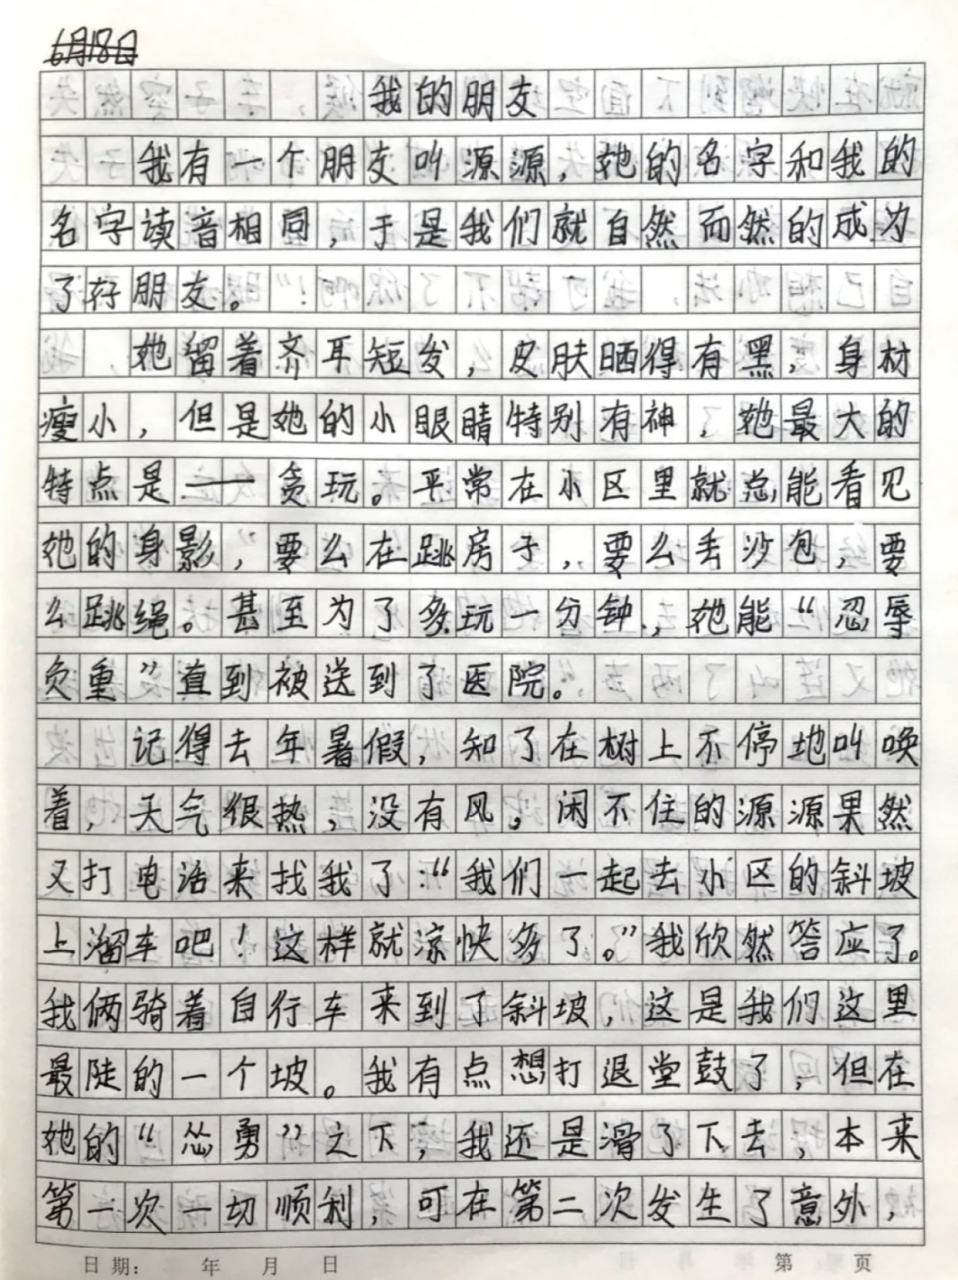 6月18日
我的朋友
我有一个朋友叫源源，她的名字和我的
名字读音相同，于是我们就自然而然的成为
了好朋友。
她留着齐耳短发，皮肤晒得有黑，身材
瘦小，但是她的小眼睛特别有神，她最大的
特点是——贪玩。平常在小区里就总能看见
她的身影，要么在跳房子，要么丢沙包，要
么跳绳。甚至为了多玩一分钟，她能“忍辱
负重”直到被送到了医院。
记得去年暑假，知了在树上不停地叫唤
着，天气很热，没有风，闲不住的源源果然
又打电话来找我了：“我们一起去小区的斜坡
上溜车吧！这样就凉快多了。”我欣然答应了。
我俩骑着自行车来到了斜坡，这是我们这里
最陡的一个坡。我有点想打退堂鼓了，但在
她的“怂勇”之下，我还是滑了下去，本来
第一次一切顺利，可在第二次发生了意外，
日期： 年 月 日 第 页